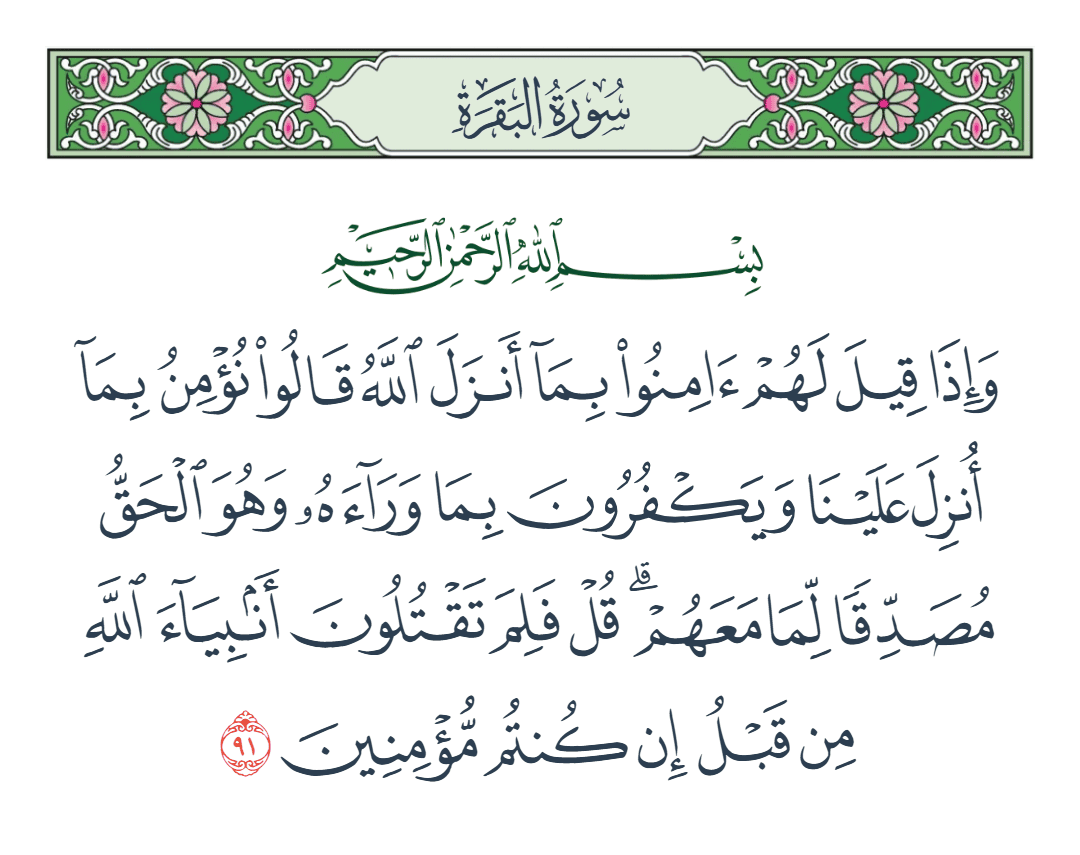 سُورَةُ البَقَرَةِ
بِسْمِ ٱللَّهِ ٱلرَّحْمَٰنِ ٱلرَّحِيمِ
وَإِذَا قِيلَ لَهُمْ ءَامِنُوا۟ بِمَآ أَنزَلَ ٱللَّهُ قَالُوا۟ نُؤْمِنُ بِمَآ
أُنزِلَ عَلَيْنَا وَيَكْفُرُونَ بِمَا وَرَآءَهُۥ وَهُوَ ٱلْحَقُّ
مُصَدِّقًا لِّمَا مَعَهُمْ ۗ قُلْ فَلِمَ تَقْتُلُونَ أَنۢبِيَآءَ ٱللَّهِ
مِن قَبْلُ إِن كُنتُم مُّؤْمِنِينَ ٩١